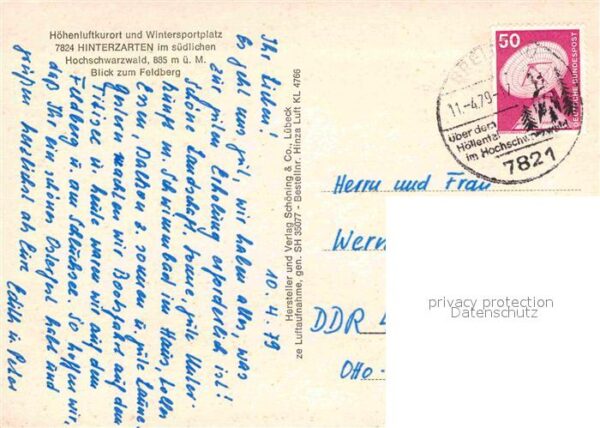 Höhenluftkurort und Wintersportplatz
7824 HINTERZARTEN im südlichen
Hochschwarzwald, 885 m ü. M.
Blick zum Feldberg
10.4.79
Ihr Lieben!
Es geht uns gut, wir haben alles, was
zur Erholung erforderlich ist!
Schöne Landschaft, Sonne, gute Unter-
kunft m. Schwimmbad im Haus, tolles
Essen
u. gute Laune.
Gestern machten wir Bootsfahrt auf dem
Titisee u. heute waren wir auf dem
Feldberg u. am Schluchsee. So hoffen wir,
daß Ihr ein schönes Osterfest habt und
grüßen herzlichst als Eure
Edith u. Peter
Hersteller und Verlag Schöning & Co., Lübeck
ze Luftaufnahme, gen. SH 35077 - Bestellnr. Hinza Luft KL 4766
50
DEUTSCHE BUNDESPOST
11.-4.79
über dem
Höllental
im Hochschwarzwald
7821
Herrn und Frau
Wern
DDR
Otto-
privacy protection
Datenschutz